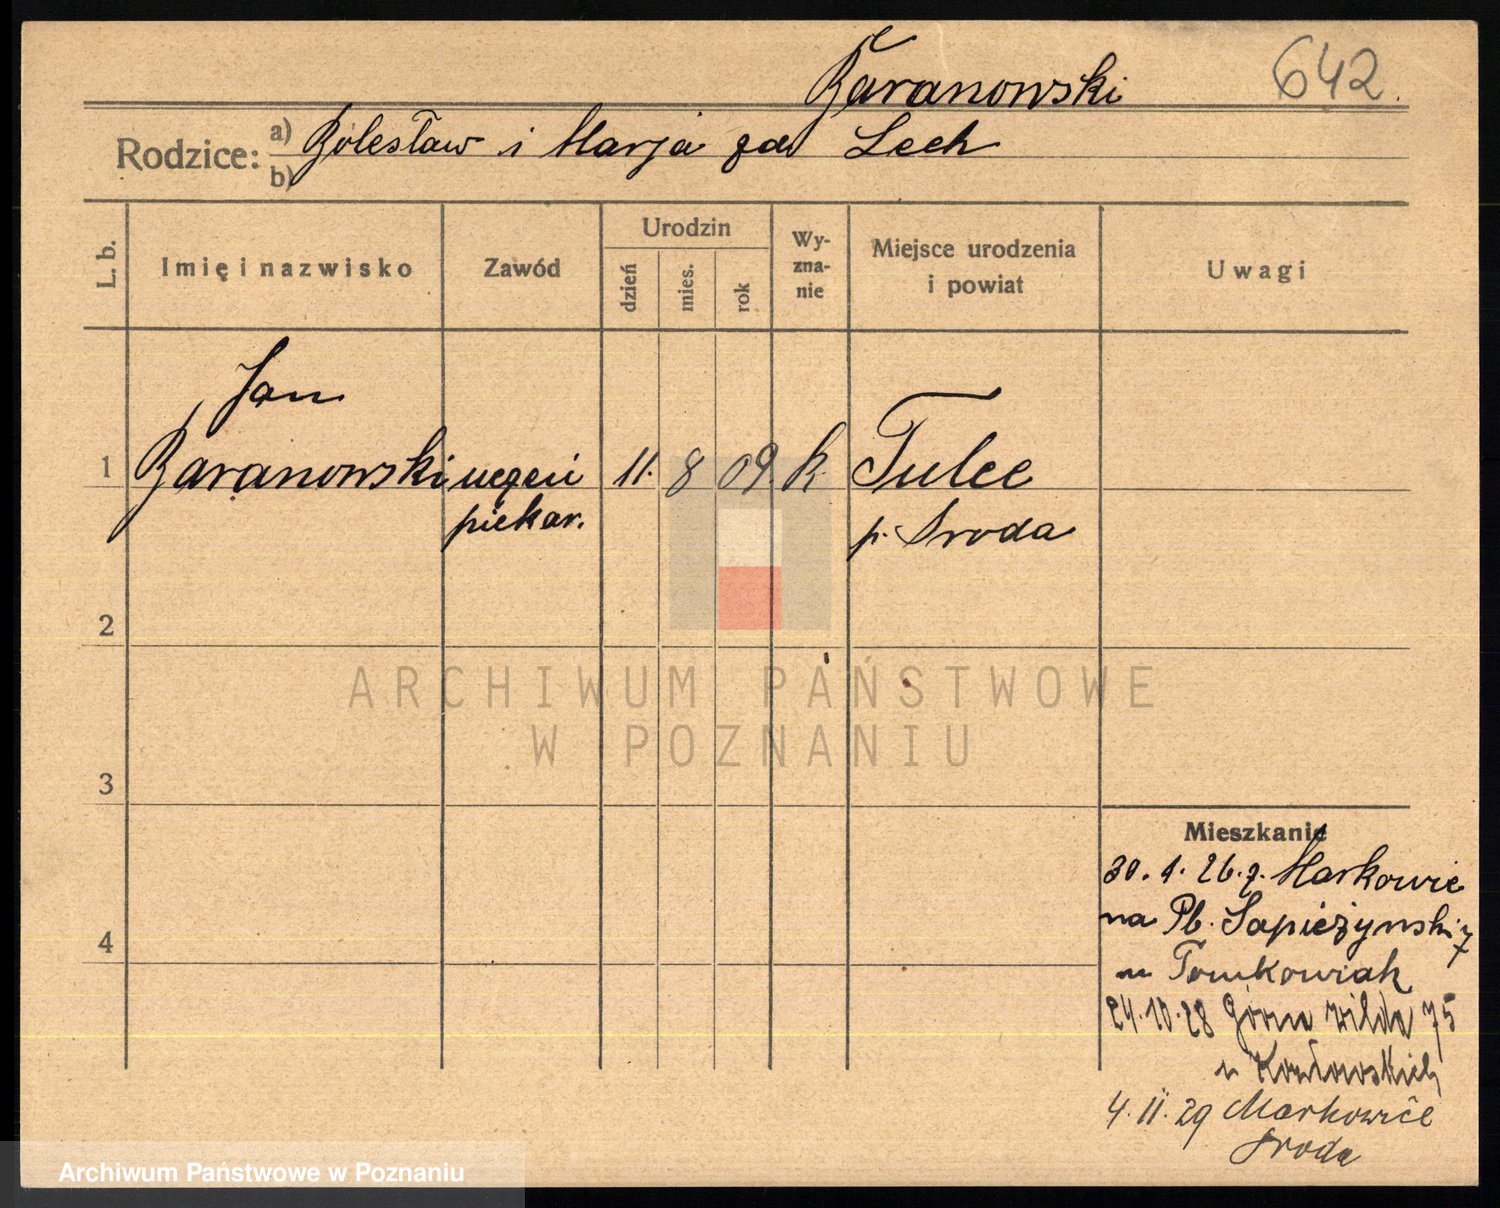 Baranowski 642.
Rodzice: a) Bolesław i Marja za Lech
b)
L. b. Imię i nazwisko Zawód Urodzin dzień mies. rok Wy-zna-nie Miejsce urodzenia i powiat Uwagi
Jan
1 Baranowski uczeń 11. 8 09. k. Tulce
piekar. p. Sroda
2
ARCHIWUM PAŃSTWOWE
W POZNANIU
3
Mieszkanie
30. 1. 26. z. Markowic
na Pl. Sapieżynski 7
4
u Tomkowiak
24.10.28 Górna Wilda 75
u Kozłowskich
4. II. 29 Markowice
Sroda
Archiwum Państwowe w Poznaniu